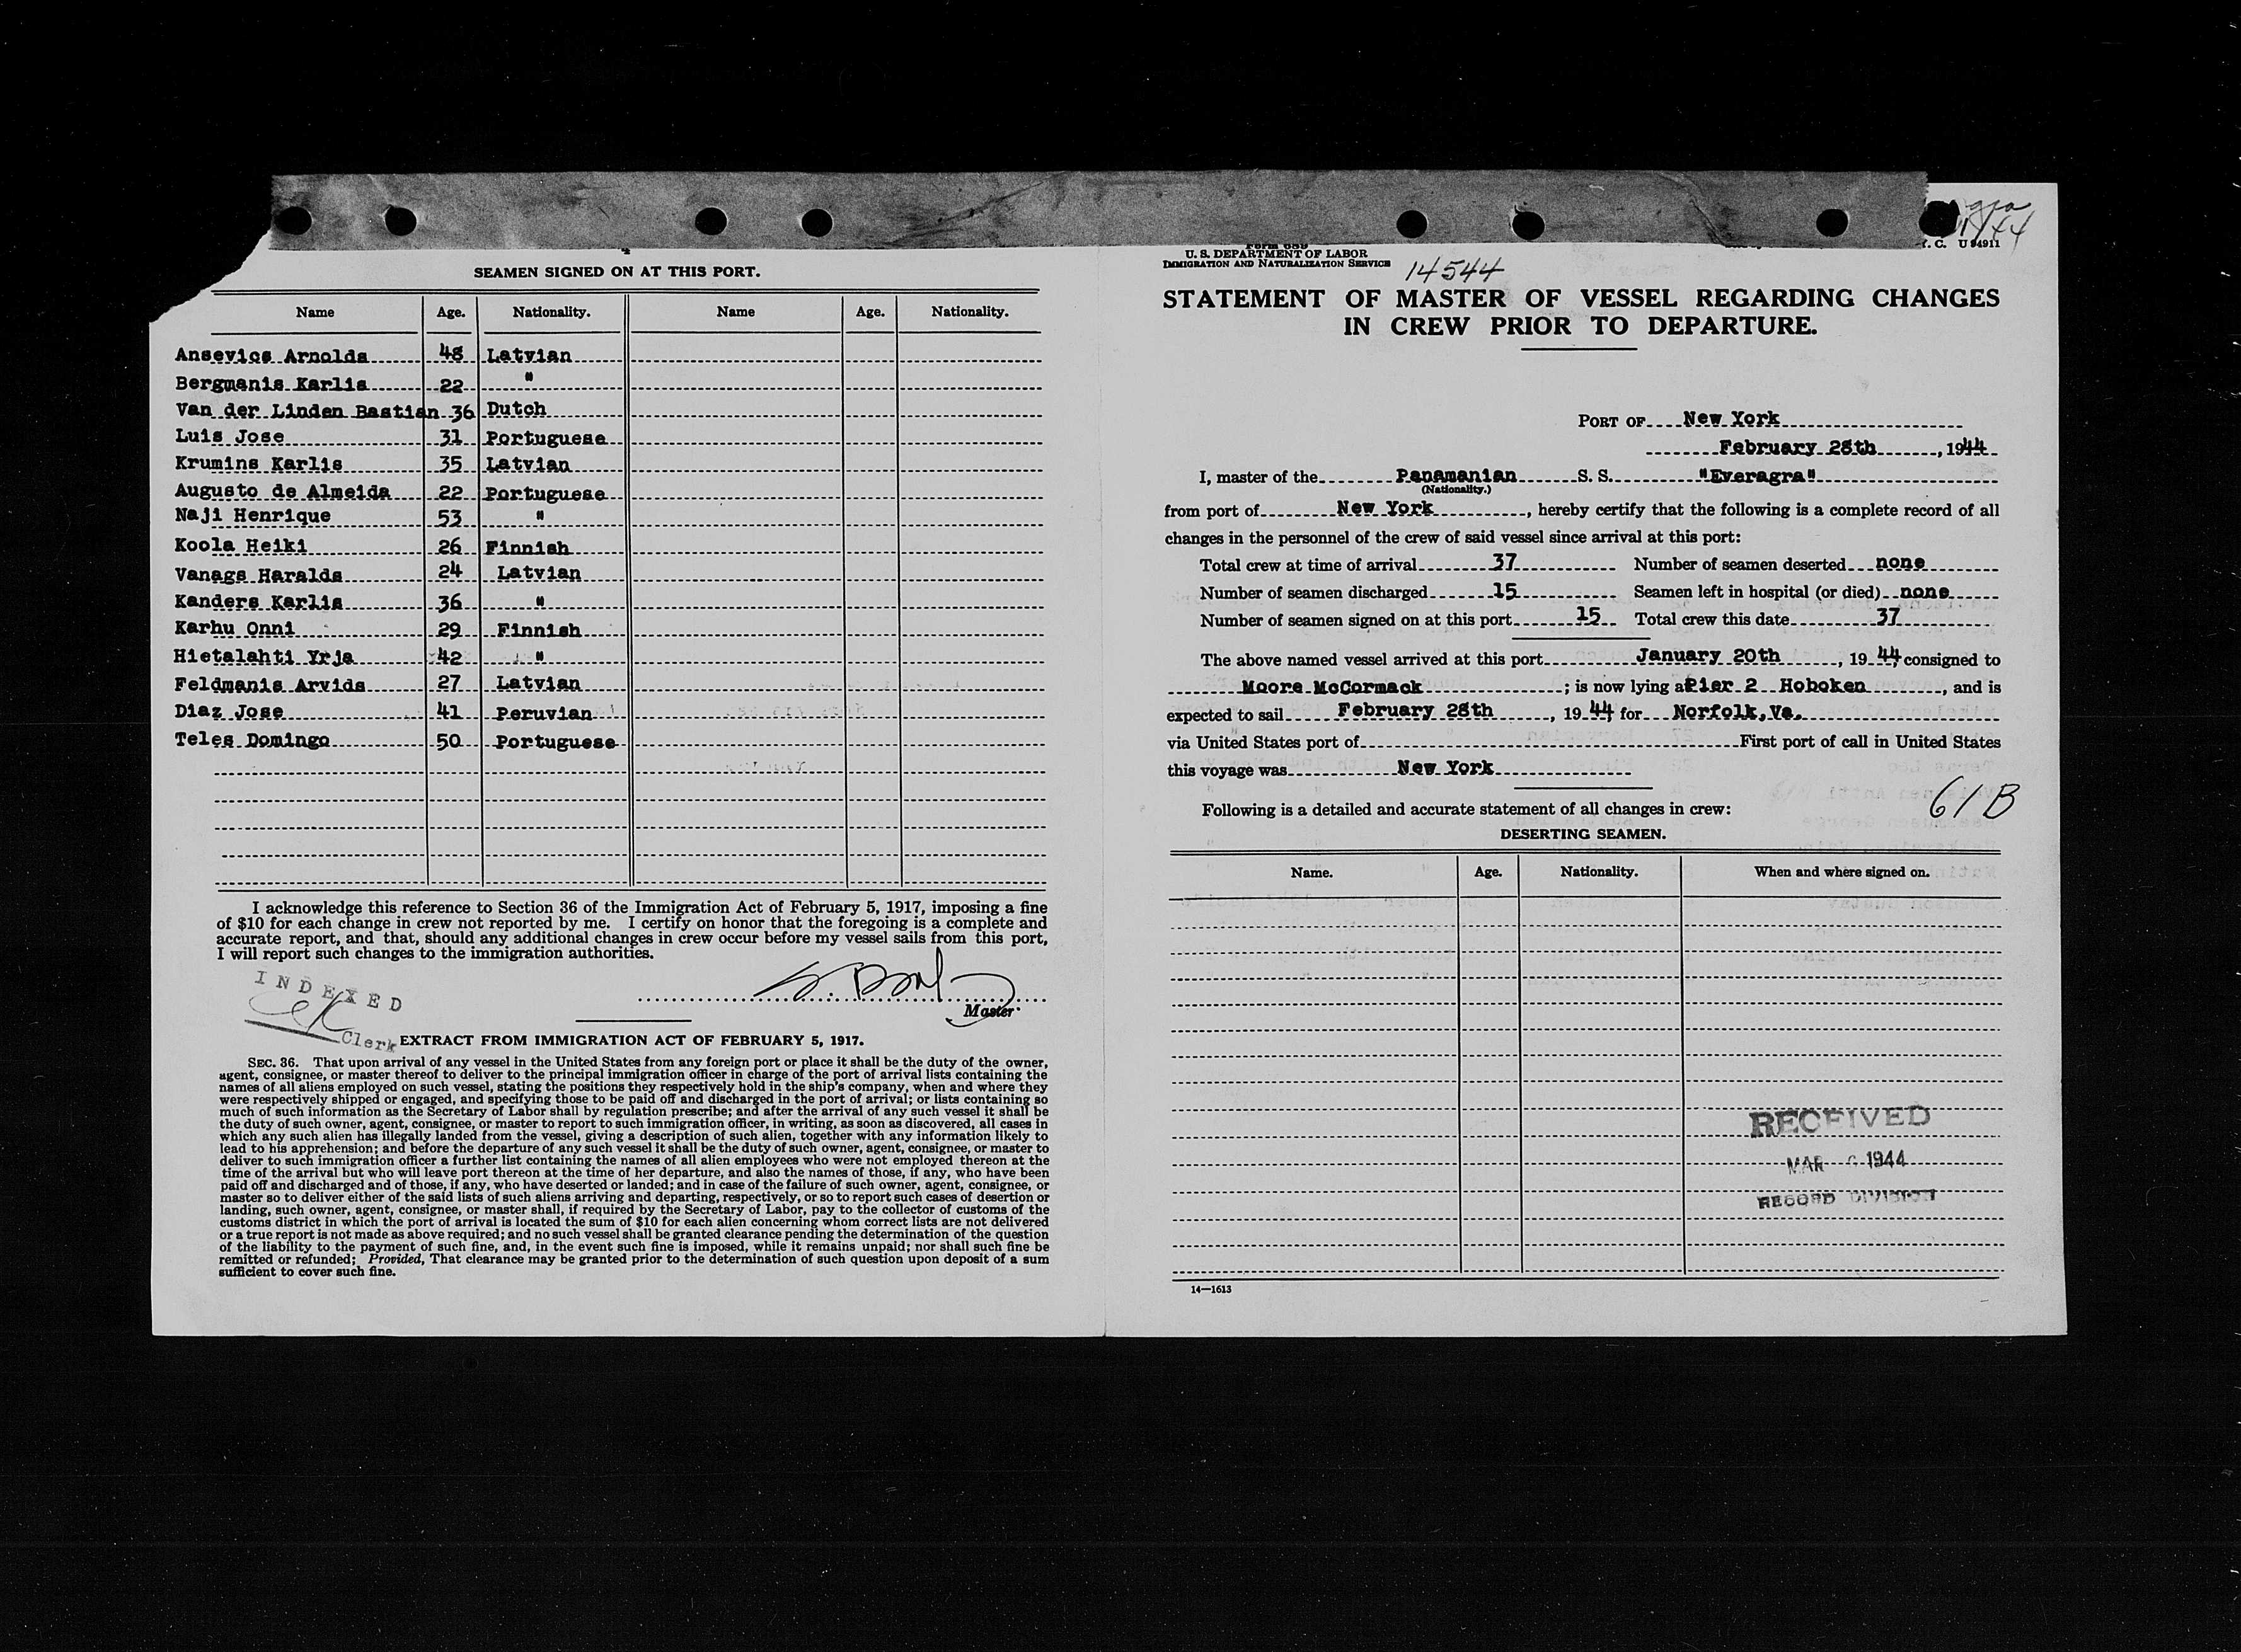 4
SEAMEN SIGNED ON AT THIS PORT.
Name Age. Nationality. Name Age. Nationality.
Ansevics Arnolds 48 Latvian
Bergmanis Karlis 22 "
Van der Linden Bastian 36 Dutch
Luis Jose 31 Portuguese
Krumins Karlis 35 Latvian
Augusto de Almeida 22 Portuguese
Naji Henrique 53 "
Koola Heiki 26 Finnish
Vanags Haralds 24 Latvian
Kanders Karlis 36 "
Karhu Onni 29 Finnish
Hietalahti Yrja 42 "
Feldmanis Arvids 27 Latvian
Diaz Jose 41 Peruvian
Teles Domingo 50 Portuguese
I acknowledge this reference to Section 36 of the Immigration Act of February 5, 1917, imposing a fine
of $10 for each change in crew not reported by me. I certify on honor that the foregoing is a complete and
accurate report, and that, should any additional changes in crew occur before my vessel sails from this port,
I will report such changes to the immigration authorities.
INDEXED
Clerk
Master
EXTRACT FROM IMMIGRATION ACT OF FEBRUARY 5, 1917.
SEC. 36. That upon arrival of any vessel in the United States from any foreign port or place it shall be the duty of the owner,
agent, consignee, or master thereof to deliver to the principal immigration officer in charge of the port of arrival lists containing the
names of all aliens employed on such vessel, stating the positions they respectively hold in the ship's company, when and where they
were respectively shipped or engaged, and specifying those to be paid off and discharged in the port of arrival; or lists containing so
much of such information as the Secretary of Labor shall by regulation prescribe; and after the arrival of any such vessel it shall be
the duty of such owner, agent, consignee, or master to report to such immigration officer, in writing, as soon as discovered, all cases in
which any such alien has illegally landed from the vessel, giving a description of such alien, together with any information likely to
lead to his apprehension; and before the departure of any such vessel it shall be the duty of such owner, agent, consignee, or master to
deliver to such immigration officer a further list containing the names of all alien employees who were not employed thereon at the
time of the arrival but who will leave port thereon at the time of her departure, and also the names of those, if any, who have been
paid off and discharged and of those, if any, who have deserted or landed; and in case of the failure of such owner, agent, consignee, or
master so to deliver either of the said lists of such aliens arriving and departing, respectively, or so to report such cases of desertion or
landing, such owner, agent, consignee, or master shall, if required by the Secretary of Labor, pay to the collector of customs of the
customs district in which the port of arrival is located the sum of $10 for each alien concerning whom correct lists are not delivered
or a true report is not made as above required; and no such vessel shall be granted clearance pending the determination of the question
of the liability to the payment of such fine, and, in the event such fine is imposed, while it remains unpaid; nor shall such fine be
remitted or refunded; Provided, That clearance may be granted prior to the determination of such question upon deposit of a sum
sufficient to cover such fine.
Form 689
U. S. DEPARTMENT OF LABOR
IMMIGRATION AND NATURALIZATION SERVICE
14544
STATEMENT OF MASTER OF VESSEL REGARDING CHANGES
IN CREW PRIOR TO DEPARTURE.
PORT OF New York
February 28th, 1944
I, master of the Panamanian S. S. "Everagra"
(Nationality.)
from port of New York, hereby certify that the following is a complete record of all
changes in the personnel of the crew of said vessel since arrival at this port:
Total crew at time of arrival 37 Number of seamen deserted none
Number of seamen discharged 15 Seamen left in hospital (or died) none
Number of seamen signed on at this port 15 Total crew this date 37
The above named vessel arrived at this port January 20th, 1944, consigned to
Moore McCormack; is now lying at Pier 2 Hoboken, and is
expected to sail February 28th, 1944 for Norfolk,Va.
via United States port of First port of call in United States
this voyage was New York
61B
Following is a detailed and accurate statement of all changes in crew:
DESERTING SEAMEN.
Name. Age. Nationality. When and where signed on.
RECEIVED
MAR 1944
RECORD DIVISION
14—1613